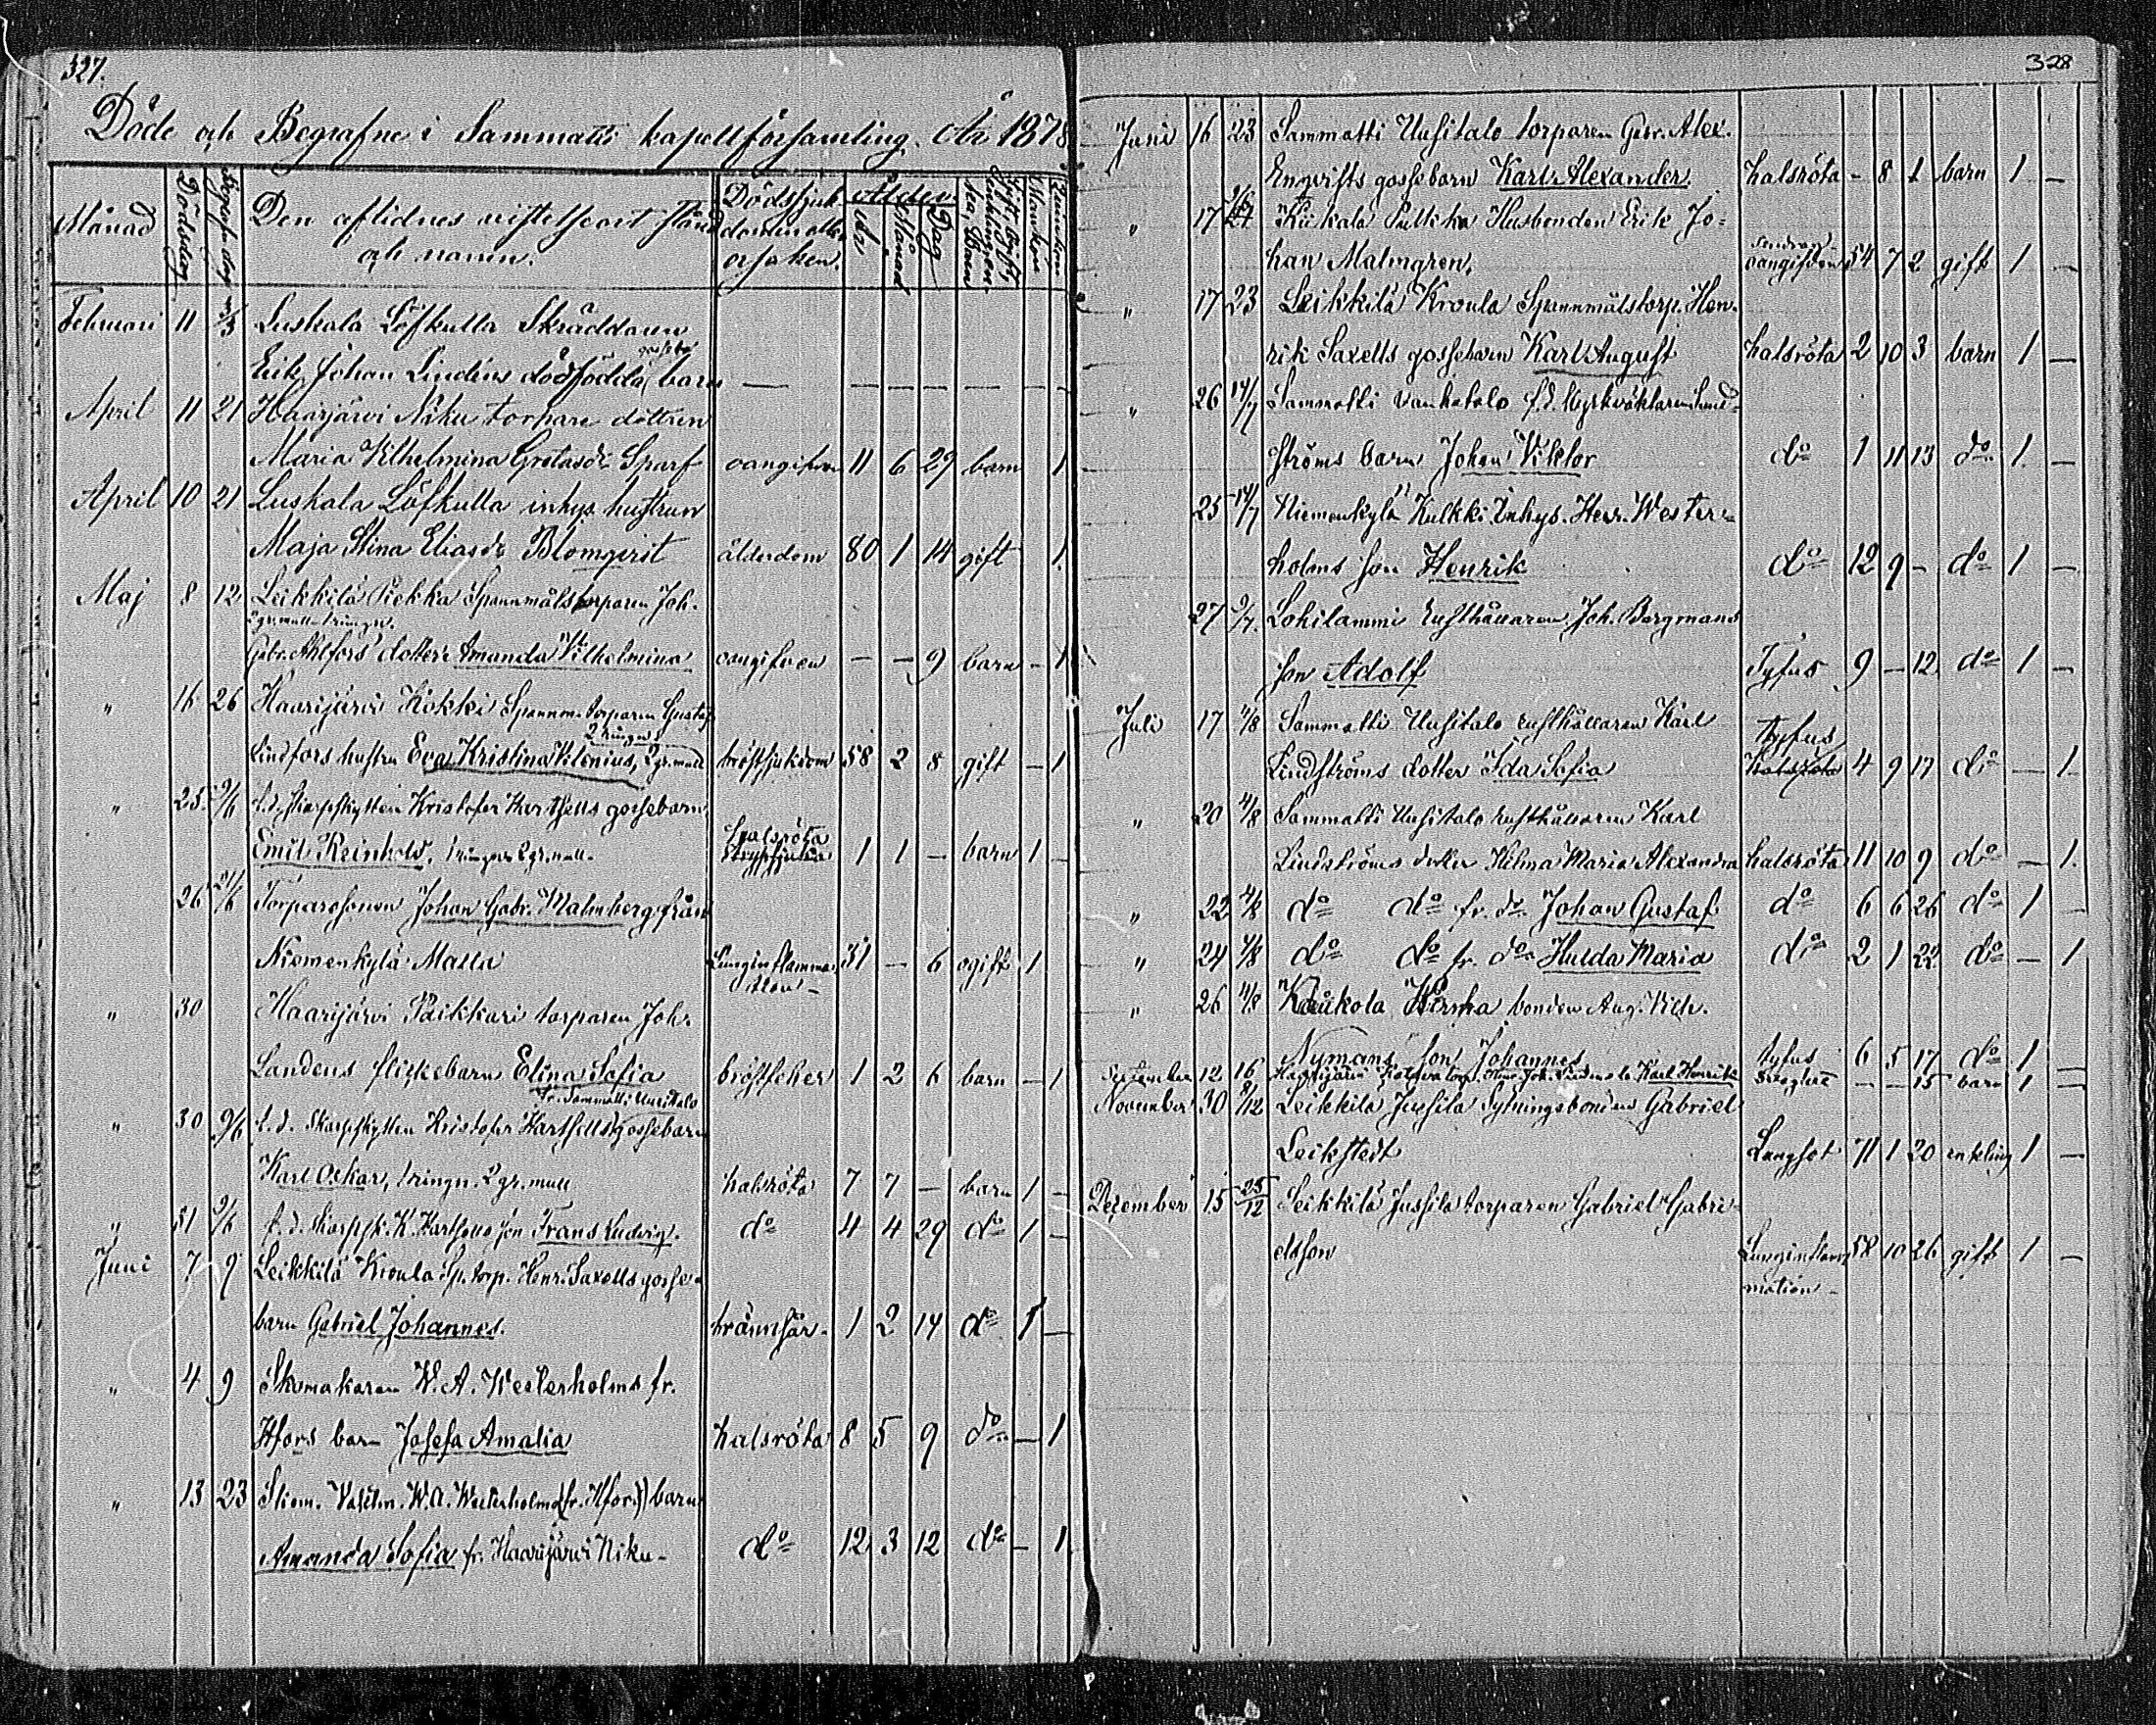 327.
Döde och Begrafne i Sammatti kapellförsamling. År 1878
Månad Dödsdag Begrafn.dag Den aflidnes vistelseort stånd och namn. Dödssjukdomen eller orsaken. Ålder År Månad Dag Mankön Qvinnkön
Februari 11 Luskala Löfkulla Skräddaren
Erik Johan Lindéns dödfödda gossebarn — — — — — —
April 11 21 Haarijärvi Niku torpare dottren
Maria Vilhelmina Gustafsdr Sparf oangifven 11 6 29 barn 1
April 10 21 Luskala Löfkulla inhys. hustrun
Maja Stina Eliasdr Blomqvist ålderdom 80 1 14 gift 1
Maj 8 12 Leikkilä Piekka Spannmålstorparen Joh.
Gabr. Ahlfors dotter Amanda Vilhelmina oangifven — — 9 barn — 1
" 16 26 Haarijärvi Kökki Spannm. torparen Gustaf
2 ringn.
Lindfors hustru Eva Kristina Vilenius, 2 gr. mull bröstsjukdom 58 2 8 gift — 1
" 25 9/6 f.d. skarpskytten Kristofer Hartsells gossebarn
Emil Reinhold, 1 ringn. 2 gr. mull. halsröta 1 1 — barn 1 —
26 Torparesonen Johan Gabr. Malmberg från
Niemenkylä Malla Lunginflammation 31 — 6 ogift 1
" 30 Haarijärvi Paikkari torparen Joh.
Landens flickebarn Elina Sofia bröstfeber 1 2 6 barn — 1
fr. Sammatti Uusitalo
" 30 9/6 f.d. Skarpskytten Kristofer Hartsells gossebarn
Karl Oskar, 1 ringn. 2 gr. mull halsröta 7 7 — barn 1 —
" 31 9/6 f.d. Skarpsk. K. Hartsells son Frans Ludvig. do 4 4 29 do 1 —
Juni 7 9 Leikkilä Kroula Sp. torp. Henr. Saxells gosse-
barn Gabriel Johannes. brännsår 1 2 14 do 1 —
" 4 9 Skomakaren W. A. Westerholms fr.
Hfors barn Josefa Amalia halsröta 8 5 9 do — 1
" 13 23 Skom. Vilhelm. W. A. Westerholms (fr. Hfors) barn
Amanda Sofia fr. Haarijärvi Niku do 12 3 12 do — 1
328
Juni 16 23 Sammatti Uusitalo torparen Gabr. Alex.
Engqvists gossebarn Karl Alexander halsröta — 8 1 barn 1 —
" 17 Kiikala Husbonden Erik Jo-
han Malmgren, oangifven 54 7 2 gift 1 —
" 17 23 Leikkilä Kroula Spannmålstorp. Hen-
rik Saxells gossebarn Karl August halsröta 2 10 3 barn 1 —
" 26 14/7 Sammatti Vanhatalo f.d. kyrkväktaren Lund-
ströms barn Johan Viktor do 1 11 13 do 1 —
25 14/7 Niemenkylä Kulkki Inhys. Henr. Wester-
holms son Henrik do 12 9 — do 1 —
27 Lohilammi Rusthållaren Joh. Bergmans
son Adolf Tyfus 9 — 12 do 1 —
Juli 17 4/8 Sammatti Uusitalo rusthållaren Karl
Lindströms dotter Ida Sofia Tyfus 4 9 17 do — 1
" 20 4/8 Sammatti Uusitalo rusthållaren Karl
Lindströms dotter Hilma Maria Alexandra halsröta 11 10 9 do — 1
" 22 4/8 do do fr. do Johan Gustaf do 6 6 26 do 1 —
" 24 4/8 do do fr. do Hulda Maria do 2 1 22 do — 1
" 26 4/8 Kaukola Wirma bonden Aug. Vilh.
Nymans son Johannes tyfus 6 5 17 do 1 —
September 12 16 Haarijärvi Karl Henrik — — 15 barn 1 —
November 30 Leikkilä Jussila Sytningsbonden Gabriel
Leikstedt Lungsot 71 1 20 enkling 1 —
December 15 25/12 Leikkilä Jussila torparen Gabriel Gabri-
elsson Lunginflammation 58 10 26 gift 1 —